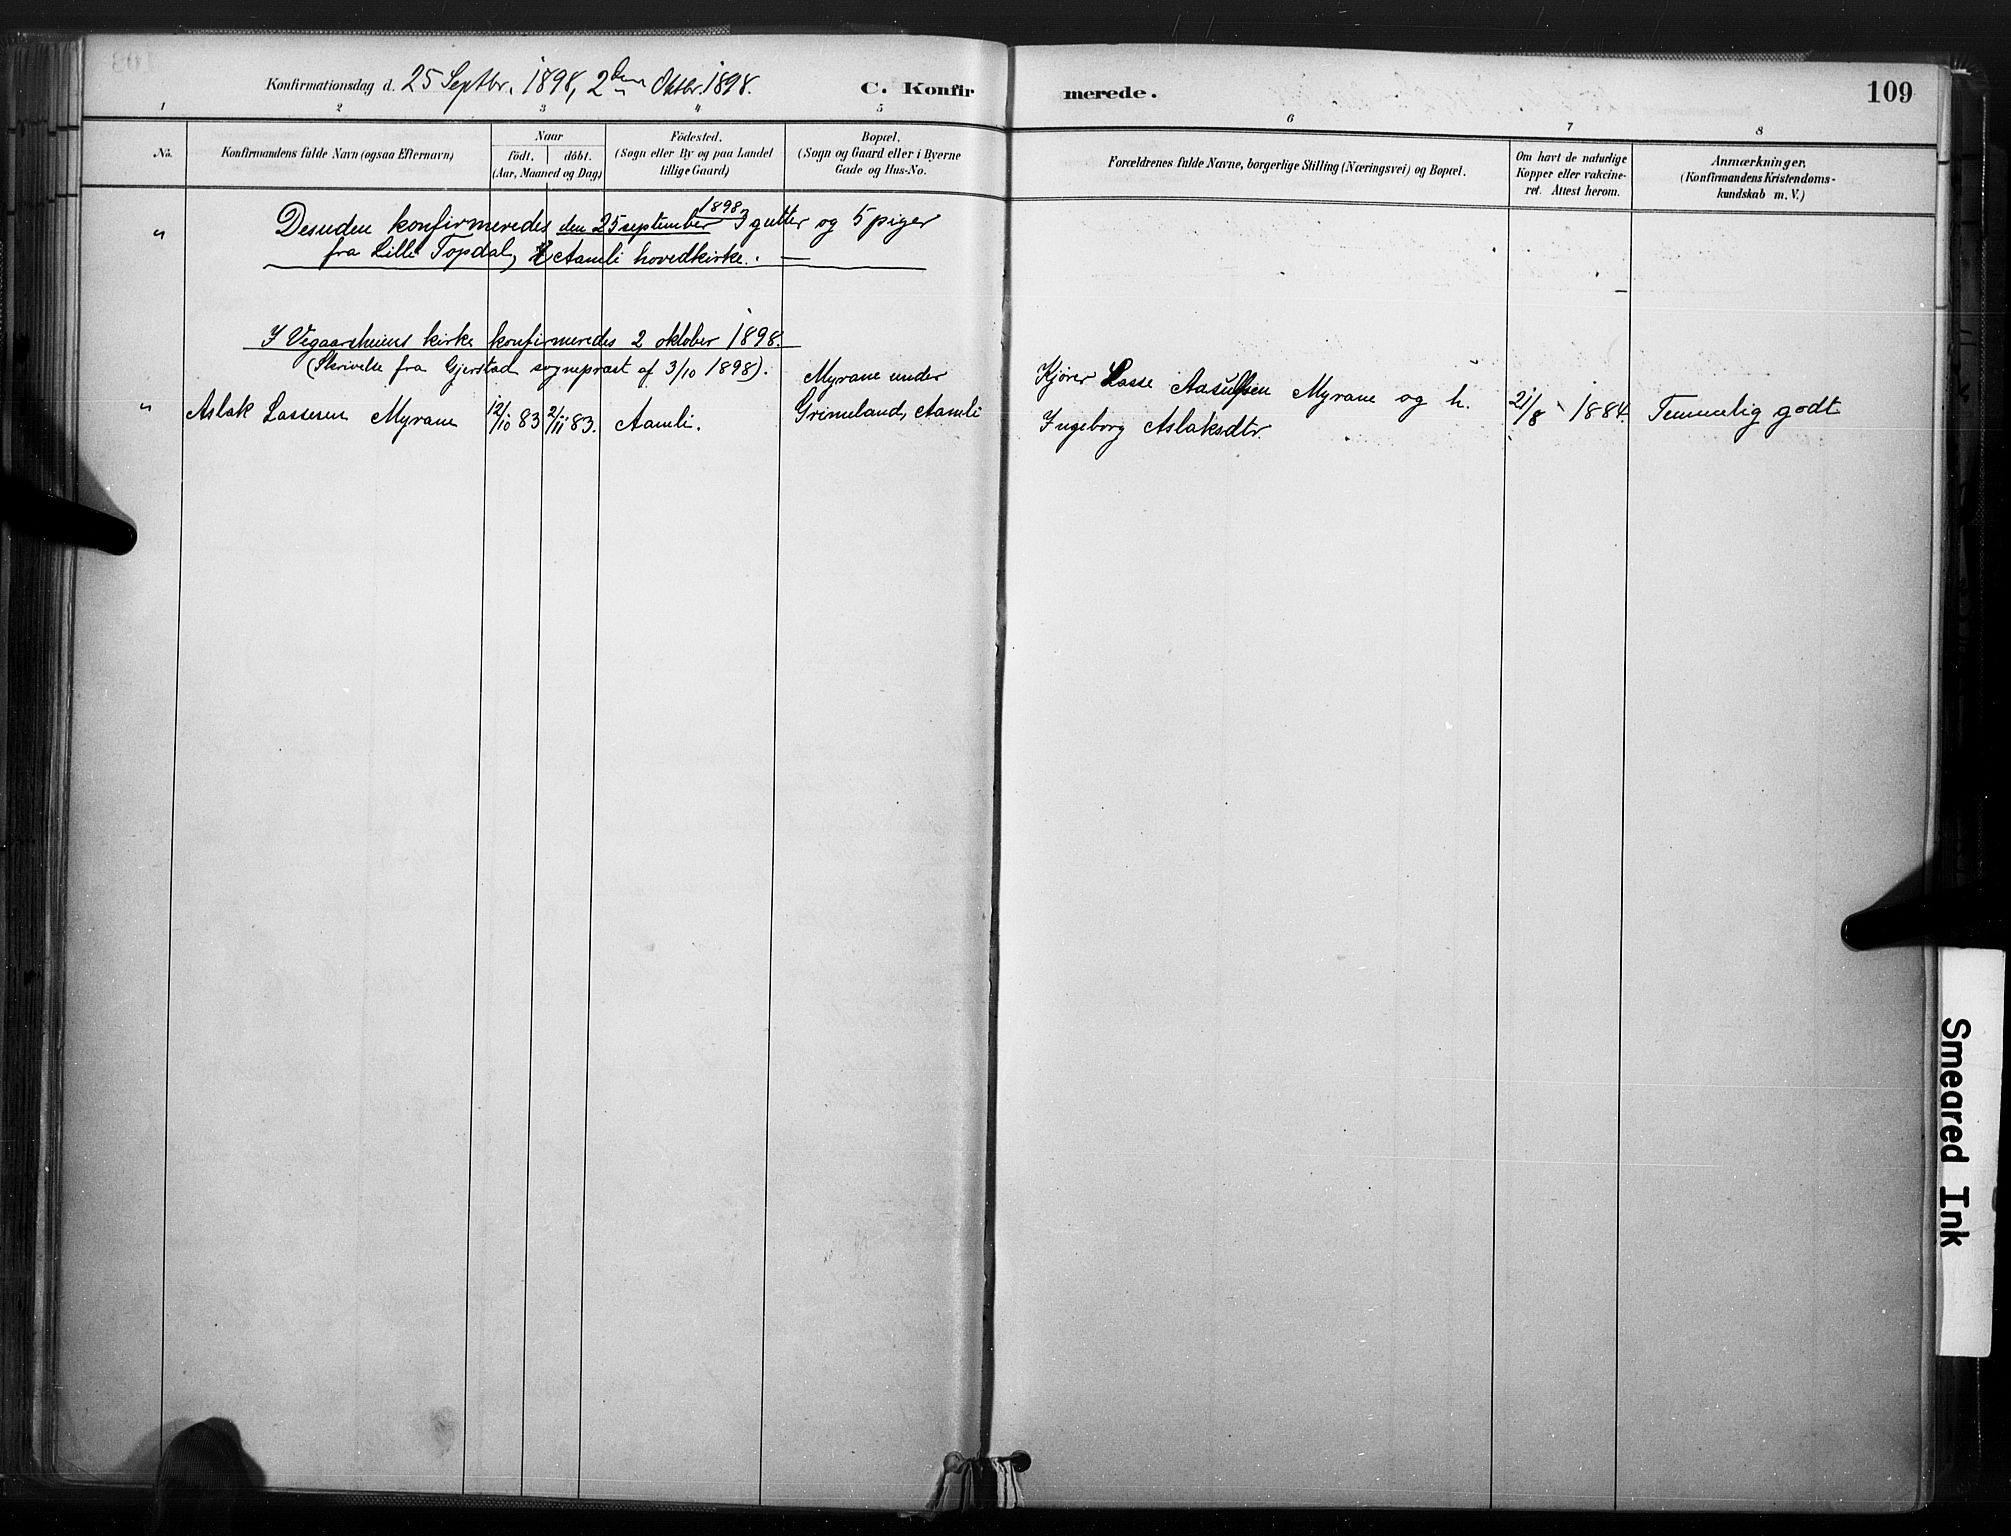 Konfirmationsdag d. 25 Septbr. 1898, 2den Oktbr. 1898. C. Konfirmerede. 109
1 2 3 4 5 6 7 8
No.
Konfirmandens fulde Navn (ogsaa Efternavn)
Naar
födt. döbt.
(Aar, Maaned og Dag)
Födested.
(Sogn eller By og paa Landet
tillige Gaard)
Bopæl.
(Sogn og Gaard eller i Byerne
Gade og Hus-No.
Forældrenes fulde Navne, borgerlige Stilling (Næringsvei) og Bopæl.
Om havt de naturlige
Kopper eller vakcine-
ret. Attest herom.
Anmærkninger,
(Konfirmandens Kristendoms-
kundskab m. V.)
1898
" Desuden konfirmeredes den 25 september 3 gutter og 5 piger
fra Lille Topdal, i Aamli hovedkirke. —
I Vegaarsheiens kirke konfirmeredes 2 oktober 1898.
(Skrivelse fra Gjerstad sognepræst af 3/10 1898).
" Aslak Lassesen Myrane 12/10 83 2/11 83. Aamli.
Myrane under
Grimeland, Aamli
Kjører Lasse Aasulfsen Myrane og h.
Ingeborg Aslaksdtr.
21/8 1884.
Temmelig godt
Smeared Ink